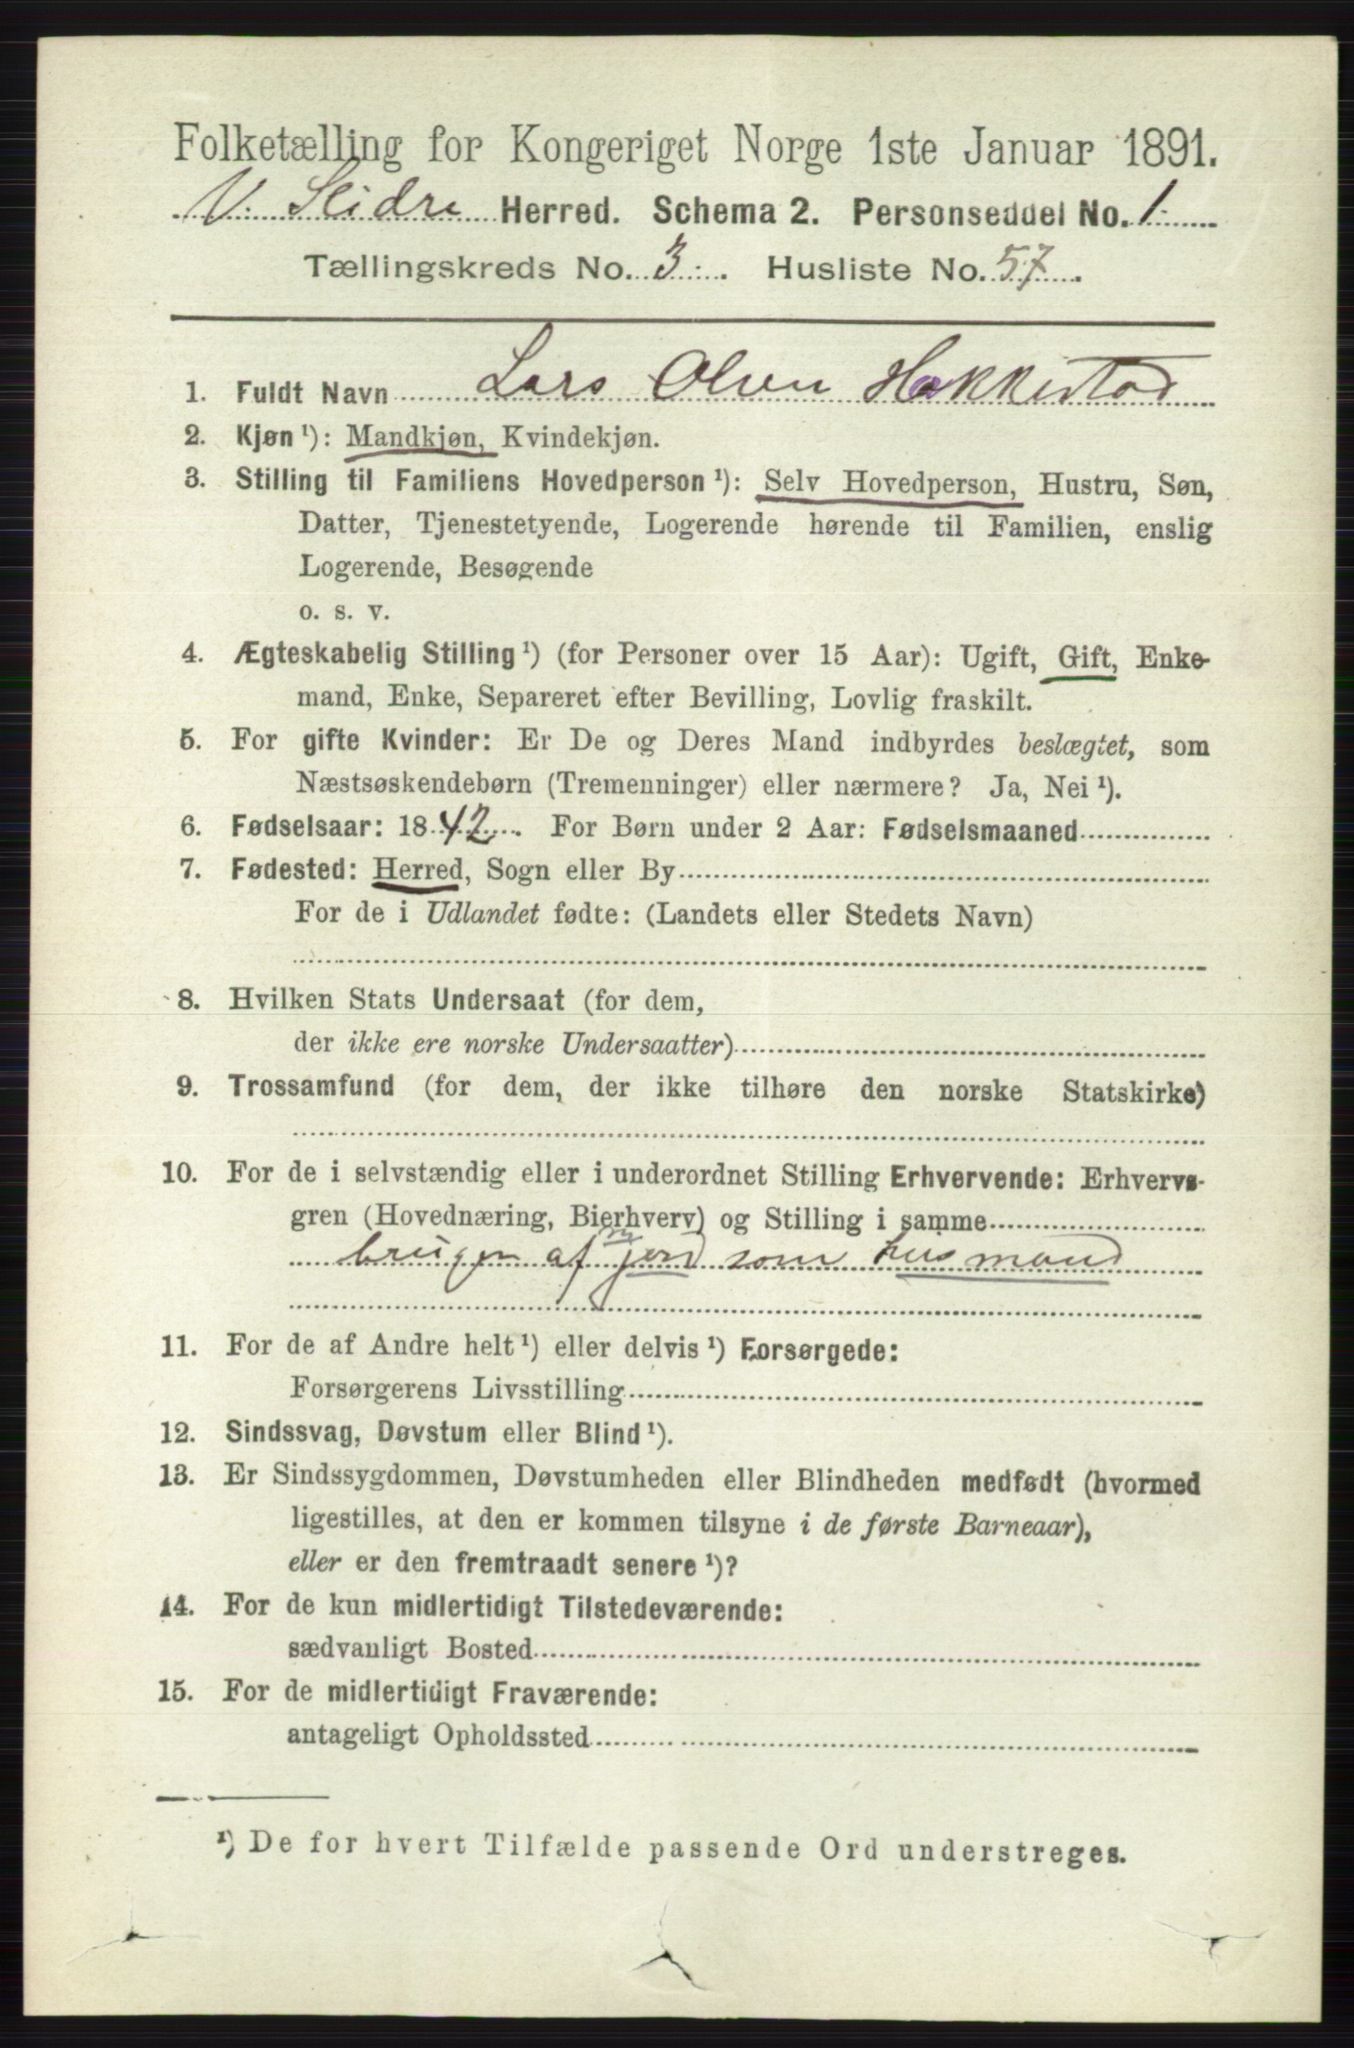 Folketælling for Kongeriget Norge 1ste Januar 1891.
V. Slidre Herred. Schema 2. Personseddel No. 1.
Tællingskreds No. 3. Husliste No. 57.
1. Fuldt Navn Lars Olsen Hakkestad
2. Kjøn ¹): Mandkjøn, Kvindekjøn.
3. Stilling til Familiens Hovedperson ¹): Selv Hovedperson, Hustru, Søn,
Datter, Tjenestetyende, Logerende hørende til Familien, enslig
Logerende, Besøgende
o. s. v.
4. Ægteskabelig Stilling ¹) (for Personer over 15 Aar): Ugift, Gift, Enke-
mand, Enke, Separeret efter Bevilling, Lovlig fraskilt.
5. For gifte Kvinder: Er De og Deres Mand indbyrdes beslægtet, som
Næstsøskendebørn (Tremenninger) eller nærmere? Ja, Nei ¹).
6. Fødselsaar: 1842. For Børn under 2 Aar: Fødselsmaaned
7. Fødested: Herred, Sogn eller By
For de i Udlandet fødte: (Landets eller Stedets Navn)
8. Hvilken Stats Undersaat (for dem,
der ikke ere norske Undersaatter)
9. Trossamfund (for dem, der ikke tilhøre den norske Statskirke)
10. For de i selvstændig eller i underordnet Stilling Erhvervende: Erhvervs-
gren (Hovednæring, Bierhverv) og Stilling i samme
bruger af jord som husmand
11. For de af Andre helt ¹) eller delvis ¹) Forsørgede:
Forsørgerens Livsstilling
12. Sindssvag, Døvstum eller Blind ¹).
13. Er Sindssygdommen, Døvstumheden eller Blindheden medfødt (hvormed
ligestilles, at den er kommen tilsyne i de første Barneaar),
eller er den fremtraadt senere ¹)?
14. For de kun midlertidigt Tilstedeværende:
sædvanligt Bosted
15. For de midlertidigt Fraværende:
antageligt Opholdssted
¹) De for hvert Tilfælde passende Ord understreges.